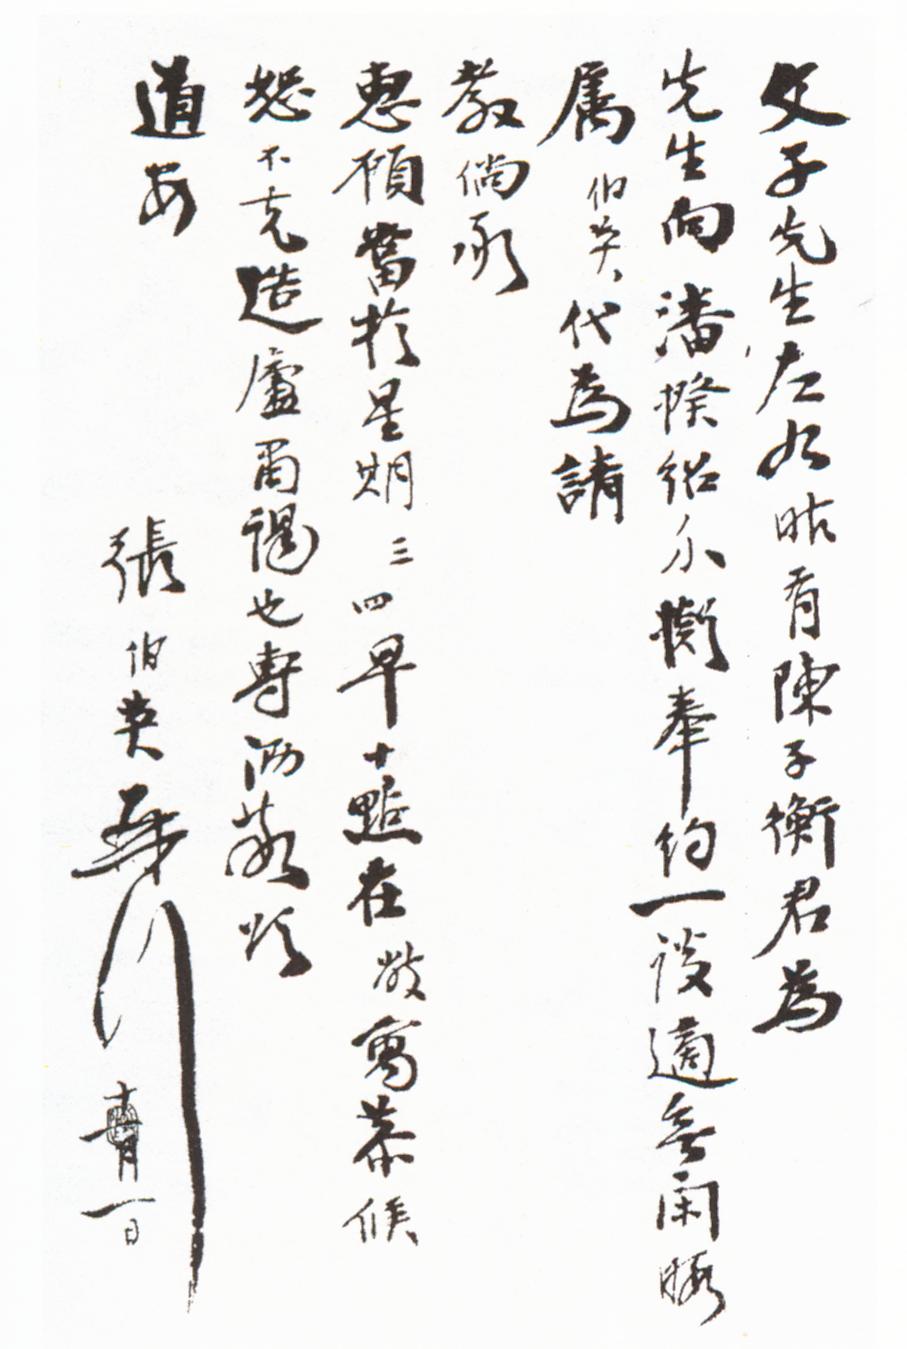 父子先生左右昨有陳子衡君為
先生向潘揆紹介擬奉約一談適無閑暇
屬伯英代為請
教倘承
惠顧當於星期三四早十點在敝寓恭候
恕不克造廬甬謁也專泐敬頌
道安
張伯英拜
十一月一日